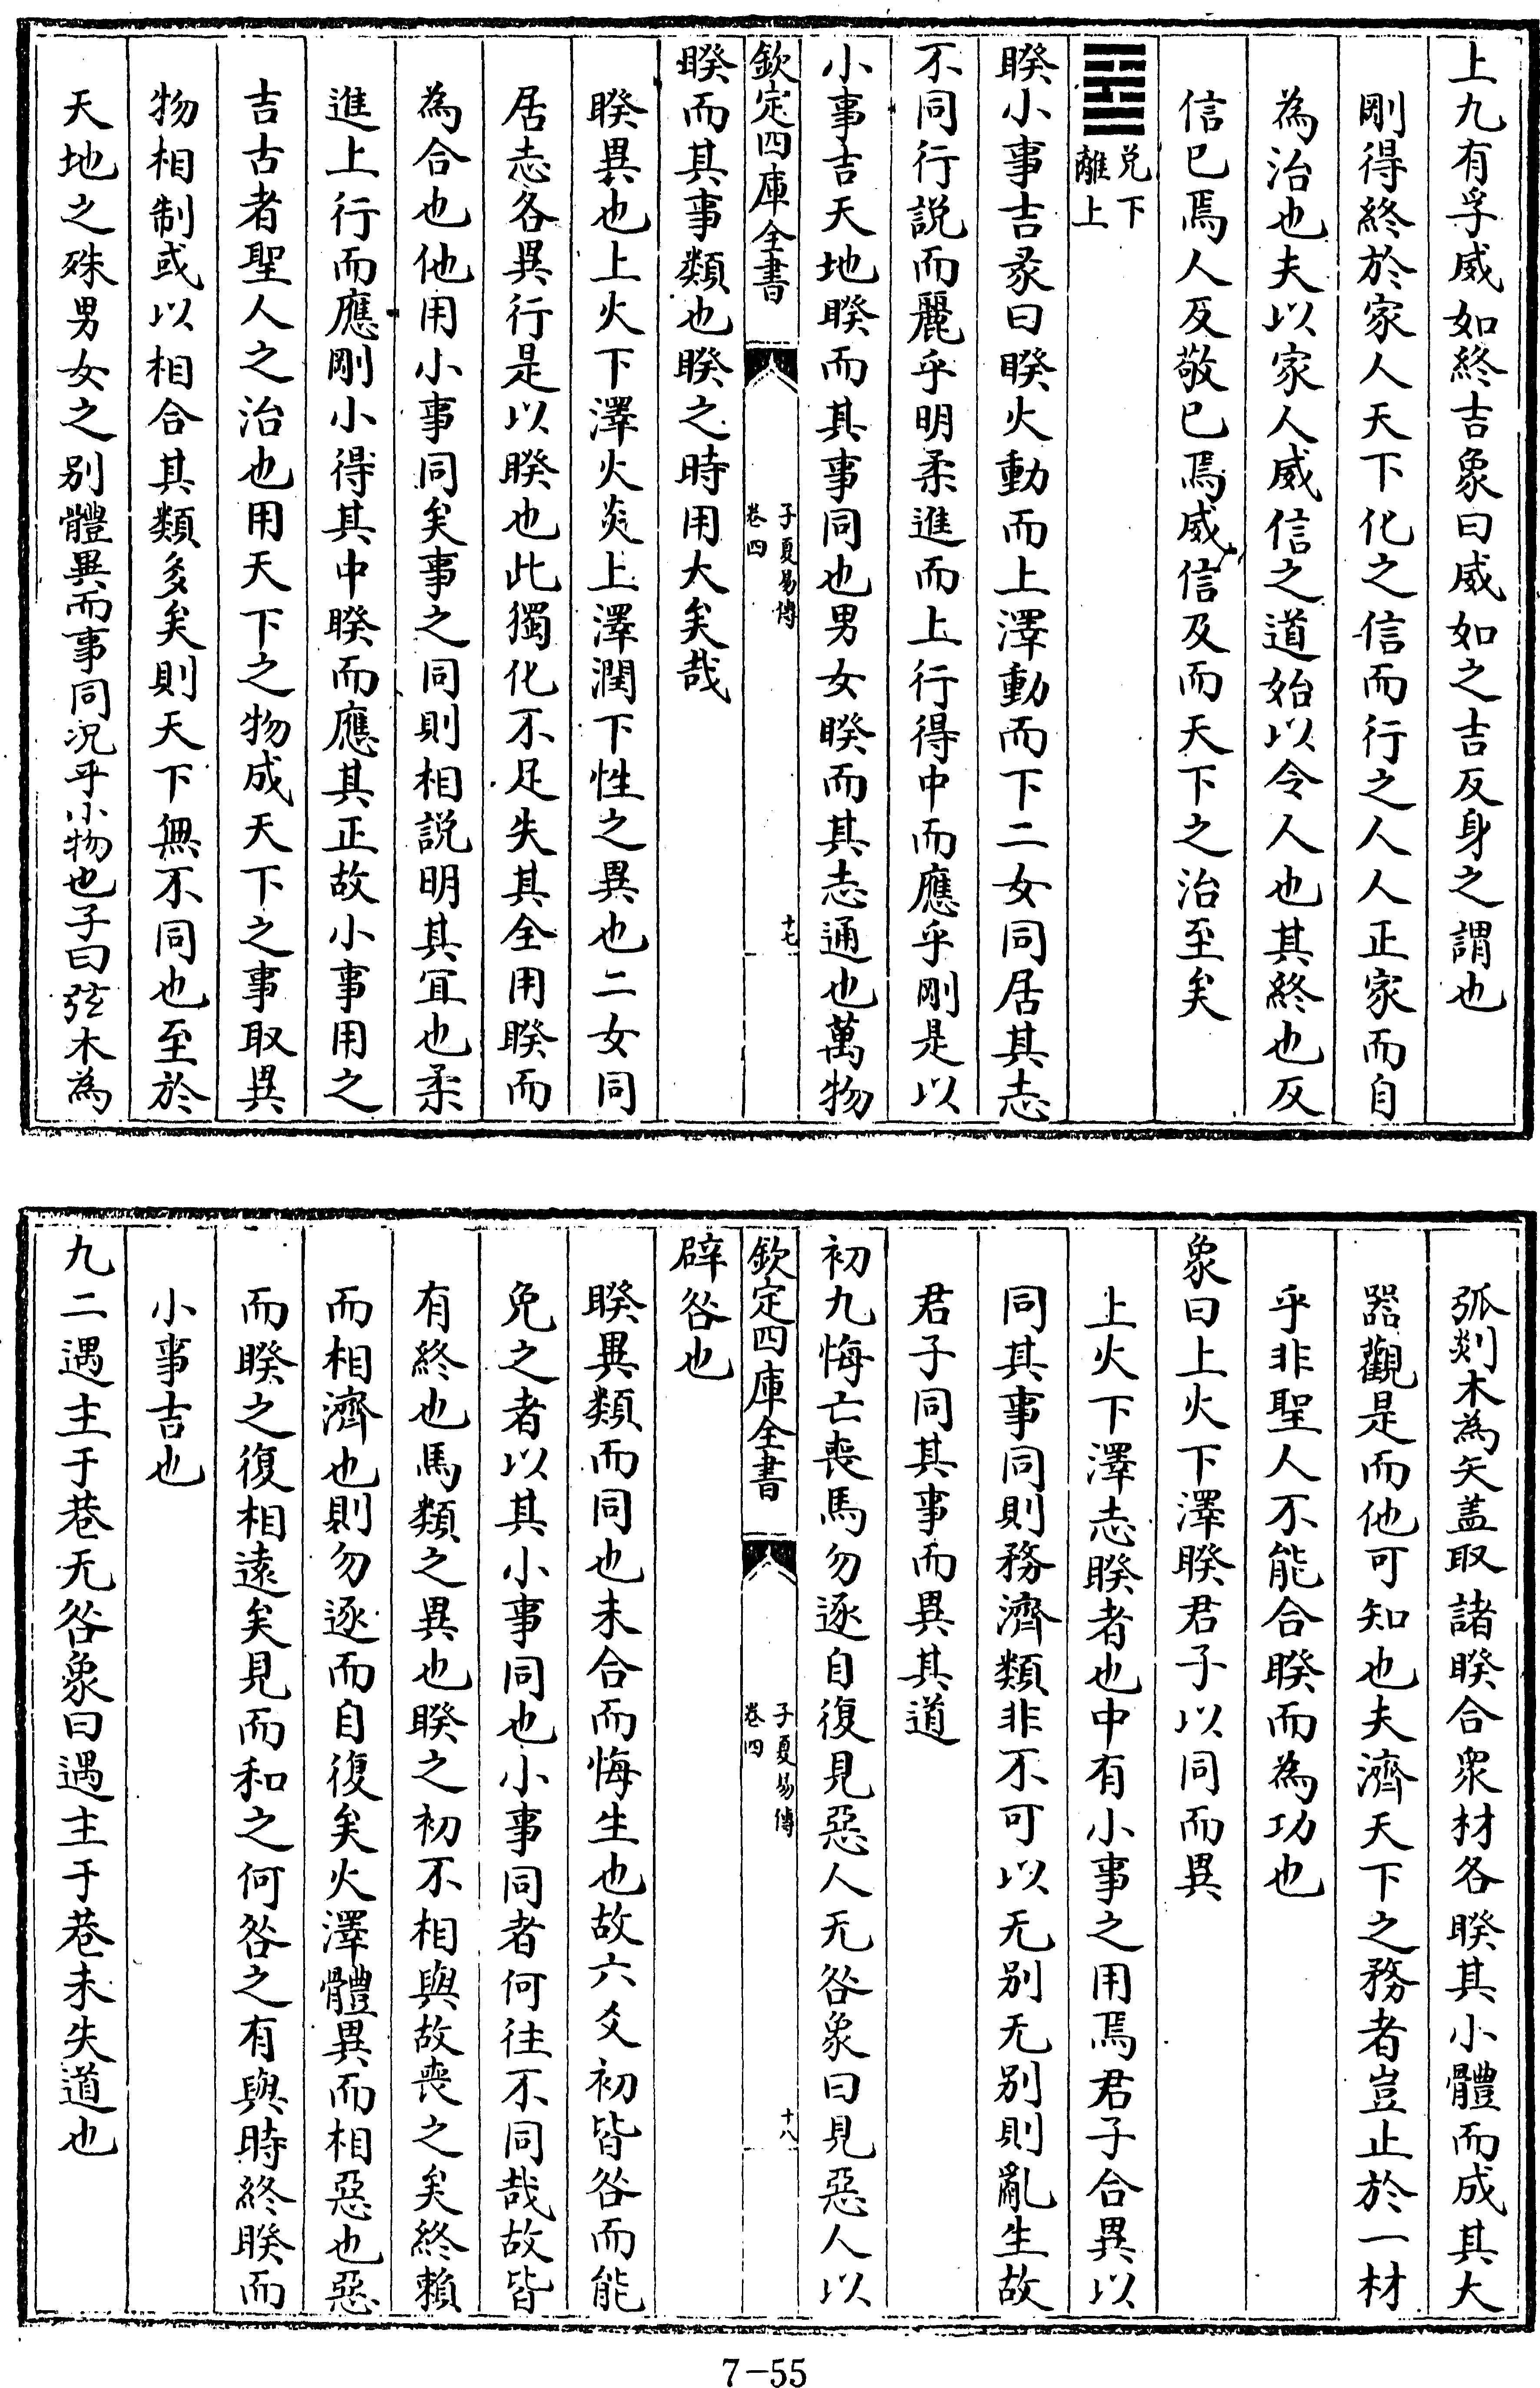 上九有孚威如終吉象曰威如之吉反身之謂也
剛得終於家人天下化之信而行之人人正家而自
為治也夫以家人威信之道始以令人也其終也反
信已焉人反敬已焉威信及而天下之治至矣
䷥兌下
離上
睽小事吉彖曰睽火動而上澤動而下二女同居其志
不同行說而麗乎明柔進而上行得中而應乎剛是以
小事吉天地睽而其事同也男女睽而其志通也萬物
欽定四庫全書
子夏易傳
卷四
十七
睽而其事類也睽之時用大矣哉
睽異也上火下澤火炎上澤潤下性之異也二女同
居志各異行是以睽也此獨化不足失其全用睽而
為合也他用小事同矣事之同則相說明其宜也柔
進上行而應剛小得其中睽而應其正故小事用之
吉古者聖人之治也用天下之物成天下之事取異
物相制或以相合其類多矣則天下無不同也至於
天地之殊男女之別體異而事同況乎小物也子曰弦木為
弧剡木為矢蓋取諸睽合衆材各睽其小體而成其大
器觀是而他可知也夫濟天下之務者豈止於一材
乎非聖人不能合睽而為功也
象曰上火下澤睽君子以同而異
上火下澤志睽者也中有小事之用焉君子合異以
同其事同則務濟類非不可以无別无別則亂生故
君子同其事而異其道
初九悔亡喪馬勿逐自復見惡人无咎象曰見惡人以
欽定四庫全書
子夏易傳
卷四
十八
辟咎也
睽異類而同也未合而悔生也故六爻初皆咎而能
免之者以其小事同也小事同者何往不同哉故皆
有終也馬類之異也睽之初不相與故喪之矣終賴
而相濟也則勿逐而自復矣火澤體異而相惡也惡
而睽之復相遠矣見而和之何咎之有與時終睽而
小事吉也
九二遇主于巷无咎象曰遇主于巷未失道也
7-55